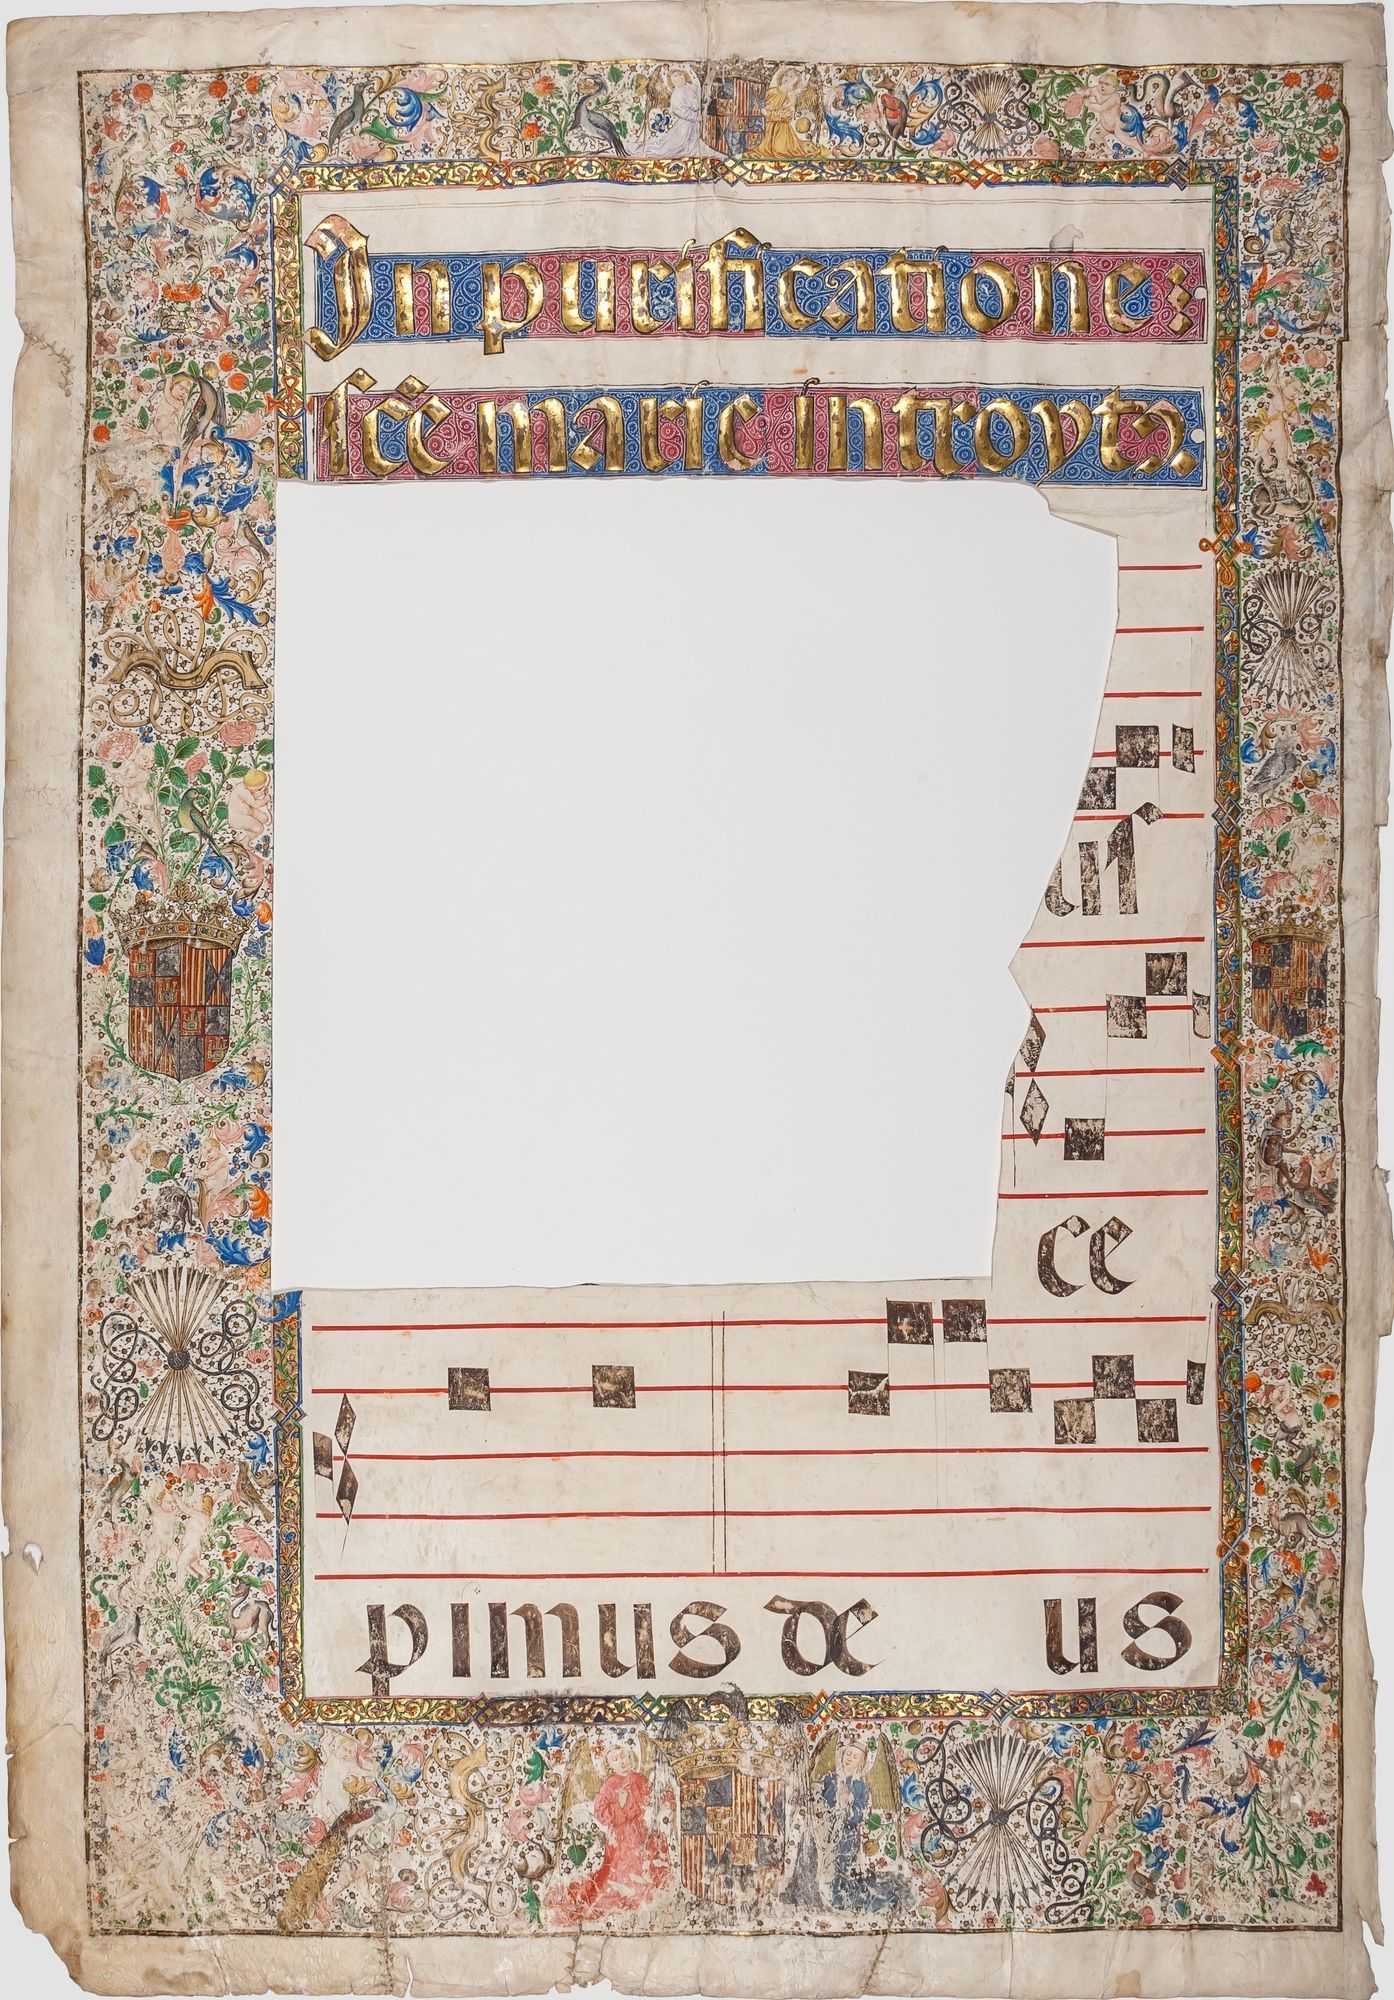 In purificatione:
sc̃e marie introyt᷒
ce
pimus de us